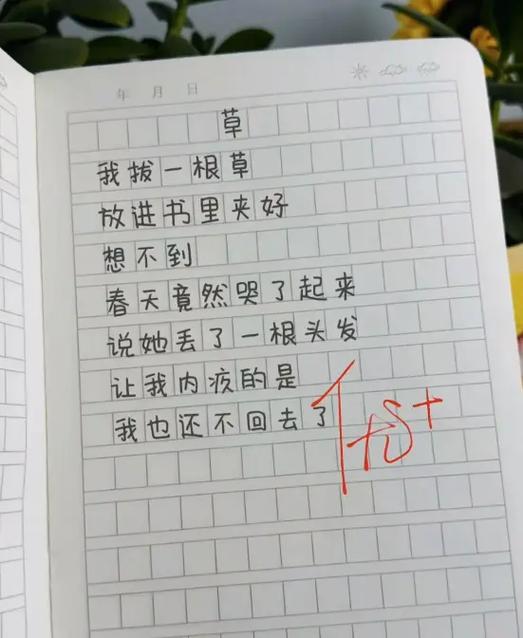 年 月 日
草
我拔一根草
放进书里夹好
想不到
春天竟然哭了起来
说她丢了一根头发
让我内疚的是
我也还不回去了
优+